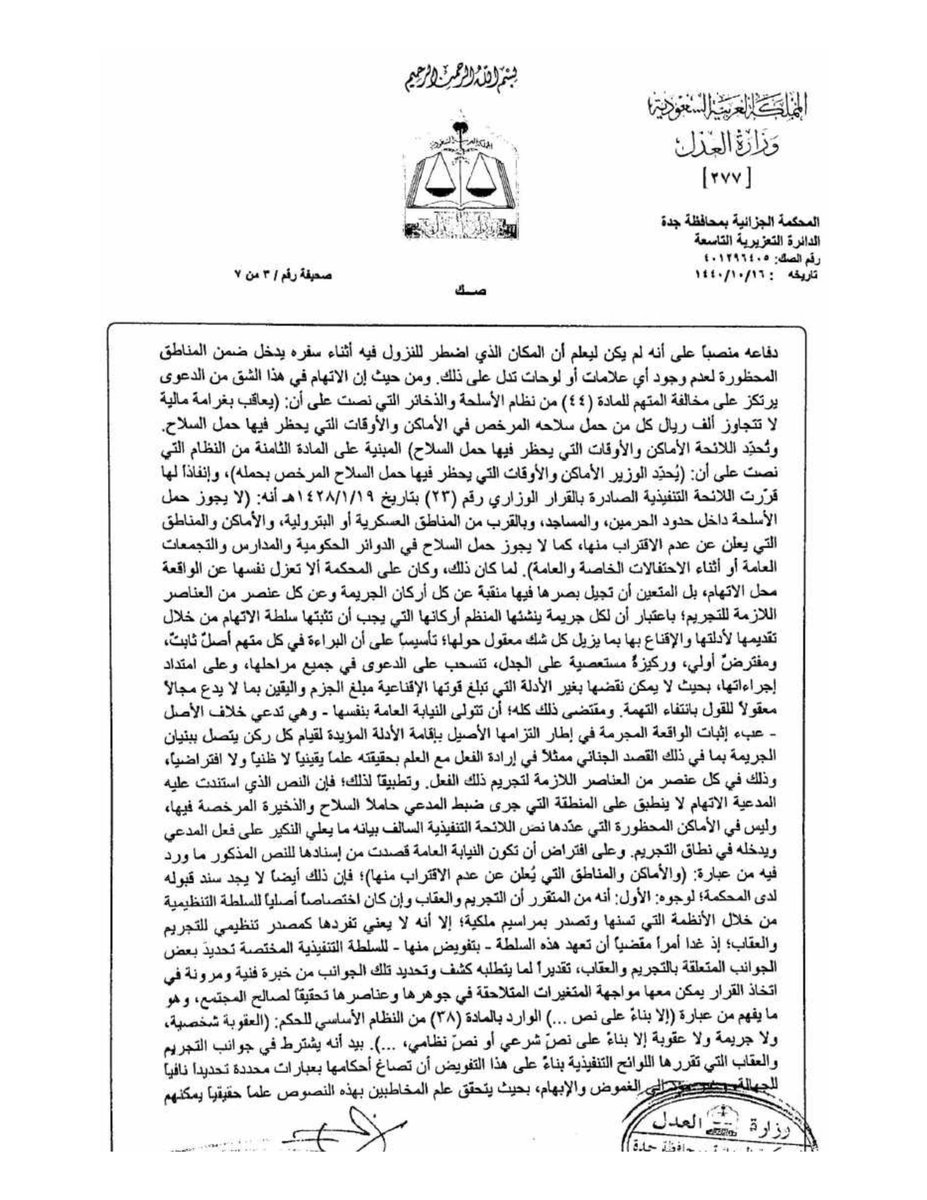 بسم الله الرحمن الرحيم
المملكة العربية السعودية
وزارة العدل
[٢٧٧]
المحكمة الجزائية بمحافظة جدة
الدائرة التعزيرية التاسعة
رقم الصك: ٤٠١٢٩٦٤٠٥
تاريخه : ١٤٤٠/١٠/١٦
صحيفة رقم / ٣ من ٧
صـــك
دفاعه منصباً على أنه لم يكن ليعلم أن المكان الذي اضطر للنزول فيه أثناء سفره يدخل ضمن المناطق
المحظورة لعدم وجود أي علامات أو لوحات تدل على ذلك. ومن حيث إن الاتهام في هذا الشق من الدعوى
يرتكز على مخالفة المتهم للمادة (٤٤) من نظام الأسلحة والذخائر التي نصت على أن: (يعاقب بغرامة مالية
لا تتجاوز ألف ريال كل من حمل سلاحه المرخص في الأماكن والأوقات التي يحظر فيها حمل السلاح.
وتُحدِّد اللائحة الأماكن والأوقات التي يحظر فيها حمل السلاح) المبنية على المادة الثامنة من النظام التي
نصت على أن: (يُحدِّد الوزير الأماكن والأوقات التي يحظر فيها حمل السلاح المرخص بحمله)، وإنفاذاً لها
قرّرت اللائحة التنفيذية الصادرة بالقرار الوزاري رقم (٢٣) بتاريخ ١٤٢٨/١/١٩هـ أنه: (لا يجوز حمل
الأسلحة داخل حدود الحرمين، والمساجد، وبالقرب من المناطق العسكرية أو البترولية، والأماكن والمناطق
التي يعلن عن عدم الاقتراب منها، كما لا يجوز حمل السلاح في الدوائر الحكومية والمدارس والتجمعات
العامة أو أثناء الاحتفالات الخاصة والعامة). لما كان ذلك، وكان على المحكمة ألا تعزل نفسها عن الواقعة
محل الاتهام، بل المتعين أن تجيل بصرها فيها منقبة عن كل أركان الجريمة وعن كل عنصر من العناصر
اللازمة للتجريم؛ باعتبار أن لكل جريمة ينشئها المنظم أركانها التي يجب أن تثبتها سلطة الاتهام من خلال
تقديمها لأدلتها والإقناع بها بما يزيل كل شك معقول حولها؛ تأسيساً على أن البراءة في كل متهم أصلٌ ثابتٌ،
ومفترضٌ أولي، وركيزةٌ مستعصية على الجدل، تنسحب على الدعوى في جميع مراحلها، وعلى امتداد
إجراءاتها، بحيث لا يمكن نقضها بغير الأدلة التي تبلغ قوتها الإقناعية مبلغ الجزم واليقين بما لا يدع مجالاً
معقولاً للقول بانتفاء التهمة. ومقتضى ذلك كله؛ أن تتولى النيابة العامة بنفسها - وهي تدعي خلاف الأصل
- عبء إثبات الواقعة المجرمة في إطار التزامها الأصيل بإقامة الأدلة المؤيدة لقيام كل ركن يتصل ببنيان
الجريمة بما في ذلك القصد الجنائي ممثلاً في إرادة الفعل مع العلم بحقيقته علماً يقينياً لا ظنياً ولا افتراضياً،
وذلك في كل عنصر من العناصر اللازمة لتجريم ذلك الفعل. وتطبيقاً لذلك؛ فإن النص الذي استندت عليه
المدعية الاتهام لا ينطبق على المنطقة التي جرى ضبط المدعي حاملا السلاح والذخيرة المرخصة فيها،
وليس في الأماكن المحظورة التي عدّدها نص اللائحة التنفيذية السالف بيانه ما يعلي النكير على فعل المدعي
ويدخله في نطاق التجريم. وعلى افتراض أن تكون النيابة العامة قصدت من إسنادها للنص المذكور ما ورد
فيه من عبارة: (والأماكن والمناطق التي يُعلن عن عدم الاقتراب منها)؛ فإن ذلك أيضاً لا يجد سند قبوله
لدى المحكمة؛ لوجوه: الأول: أنه من المتقرر أن التجريم والعقاب وإن كان اختصاصاً أصلياً للسلطة التنظيمية
من خلال الأنظمة التي تسنها وتصدر بمراسيم ملكية؛ إلا أنه لا يعني تفردها كمصدر تنظيمي للتجريم
والعقاب؛ إذ غدا أمراً مقضياً أن تعهد هذه السلطة - بتفويض منها - للسلطة التنفيذية المختصة تحديدَ بعض
الجوانب المتعلقة بالتجريم والعقاب، تقديراً لما يتطلبه كشف وتحديد تلك الجوانب من خبرة فنية ومرونة في
اتخاذ القرار يمكن معها مواجهة المتغيرات المتلاحقة في جوهرها وعناصرها تحقيقاً لصالح المجتمع، وهو
ما يفهم من عبارة (إلا بناءً على نص ...) الوارد بالمادة (٣٨) من النظام الأساسي للحكم: (العقوبة شخصية،
ولا جريمة ولا عقوبة إلا بناءً على نصّ شرعي أو نصّ نظامي، ...). بيد أنه يشترط في جوانب التجريم
والعقاب التي تقررها اللوائح التنفيذية بناءً على هذا التفويض أن تصاغ أحكامها بعبارات محددة تحديداً نافياً
للجهالة، إلى الغموض والإبهام، بحيث يتحقق علم المخاطبين بهذه النصوص علماً حقيقياً يمكنهم
وزارة العدل